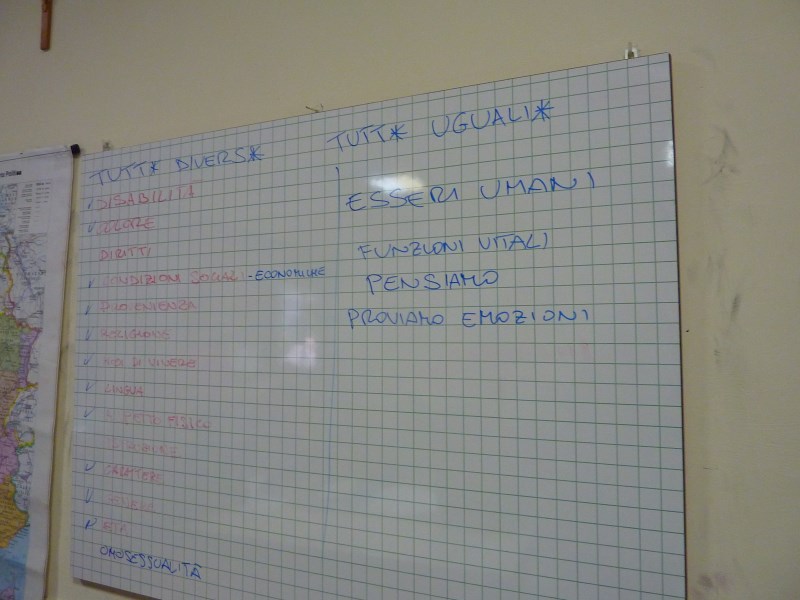 TUTT* DIVERS*
DISABILITÀ
COLORE
DIRITTI
CONDIZIONI SOCIALI-ECONOMICHE
PROVENIENZA
RELIGIONE
MODI DI VIVERE
LINGUA
ASPETTO FISICO
CARATTERE
ETÀ
OMOSESSUALITÀ
TUTT* UGUALI*
ESSERI UMANI
FUNZIONI VITALI
PENSIAMO
PROVIAMO EMOZIONI